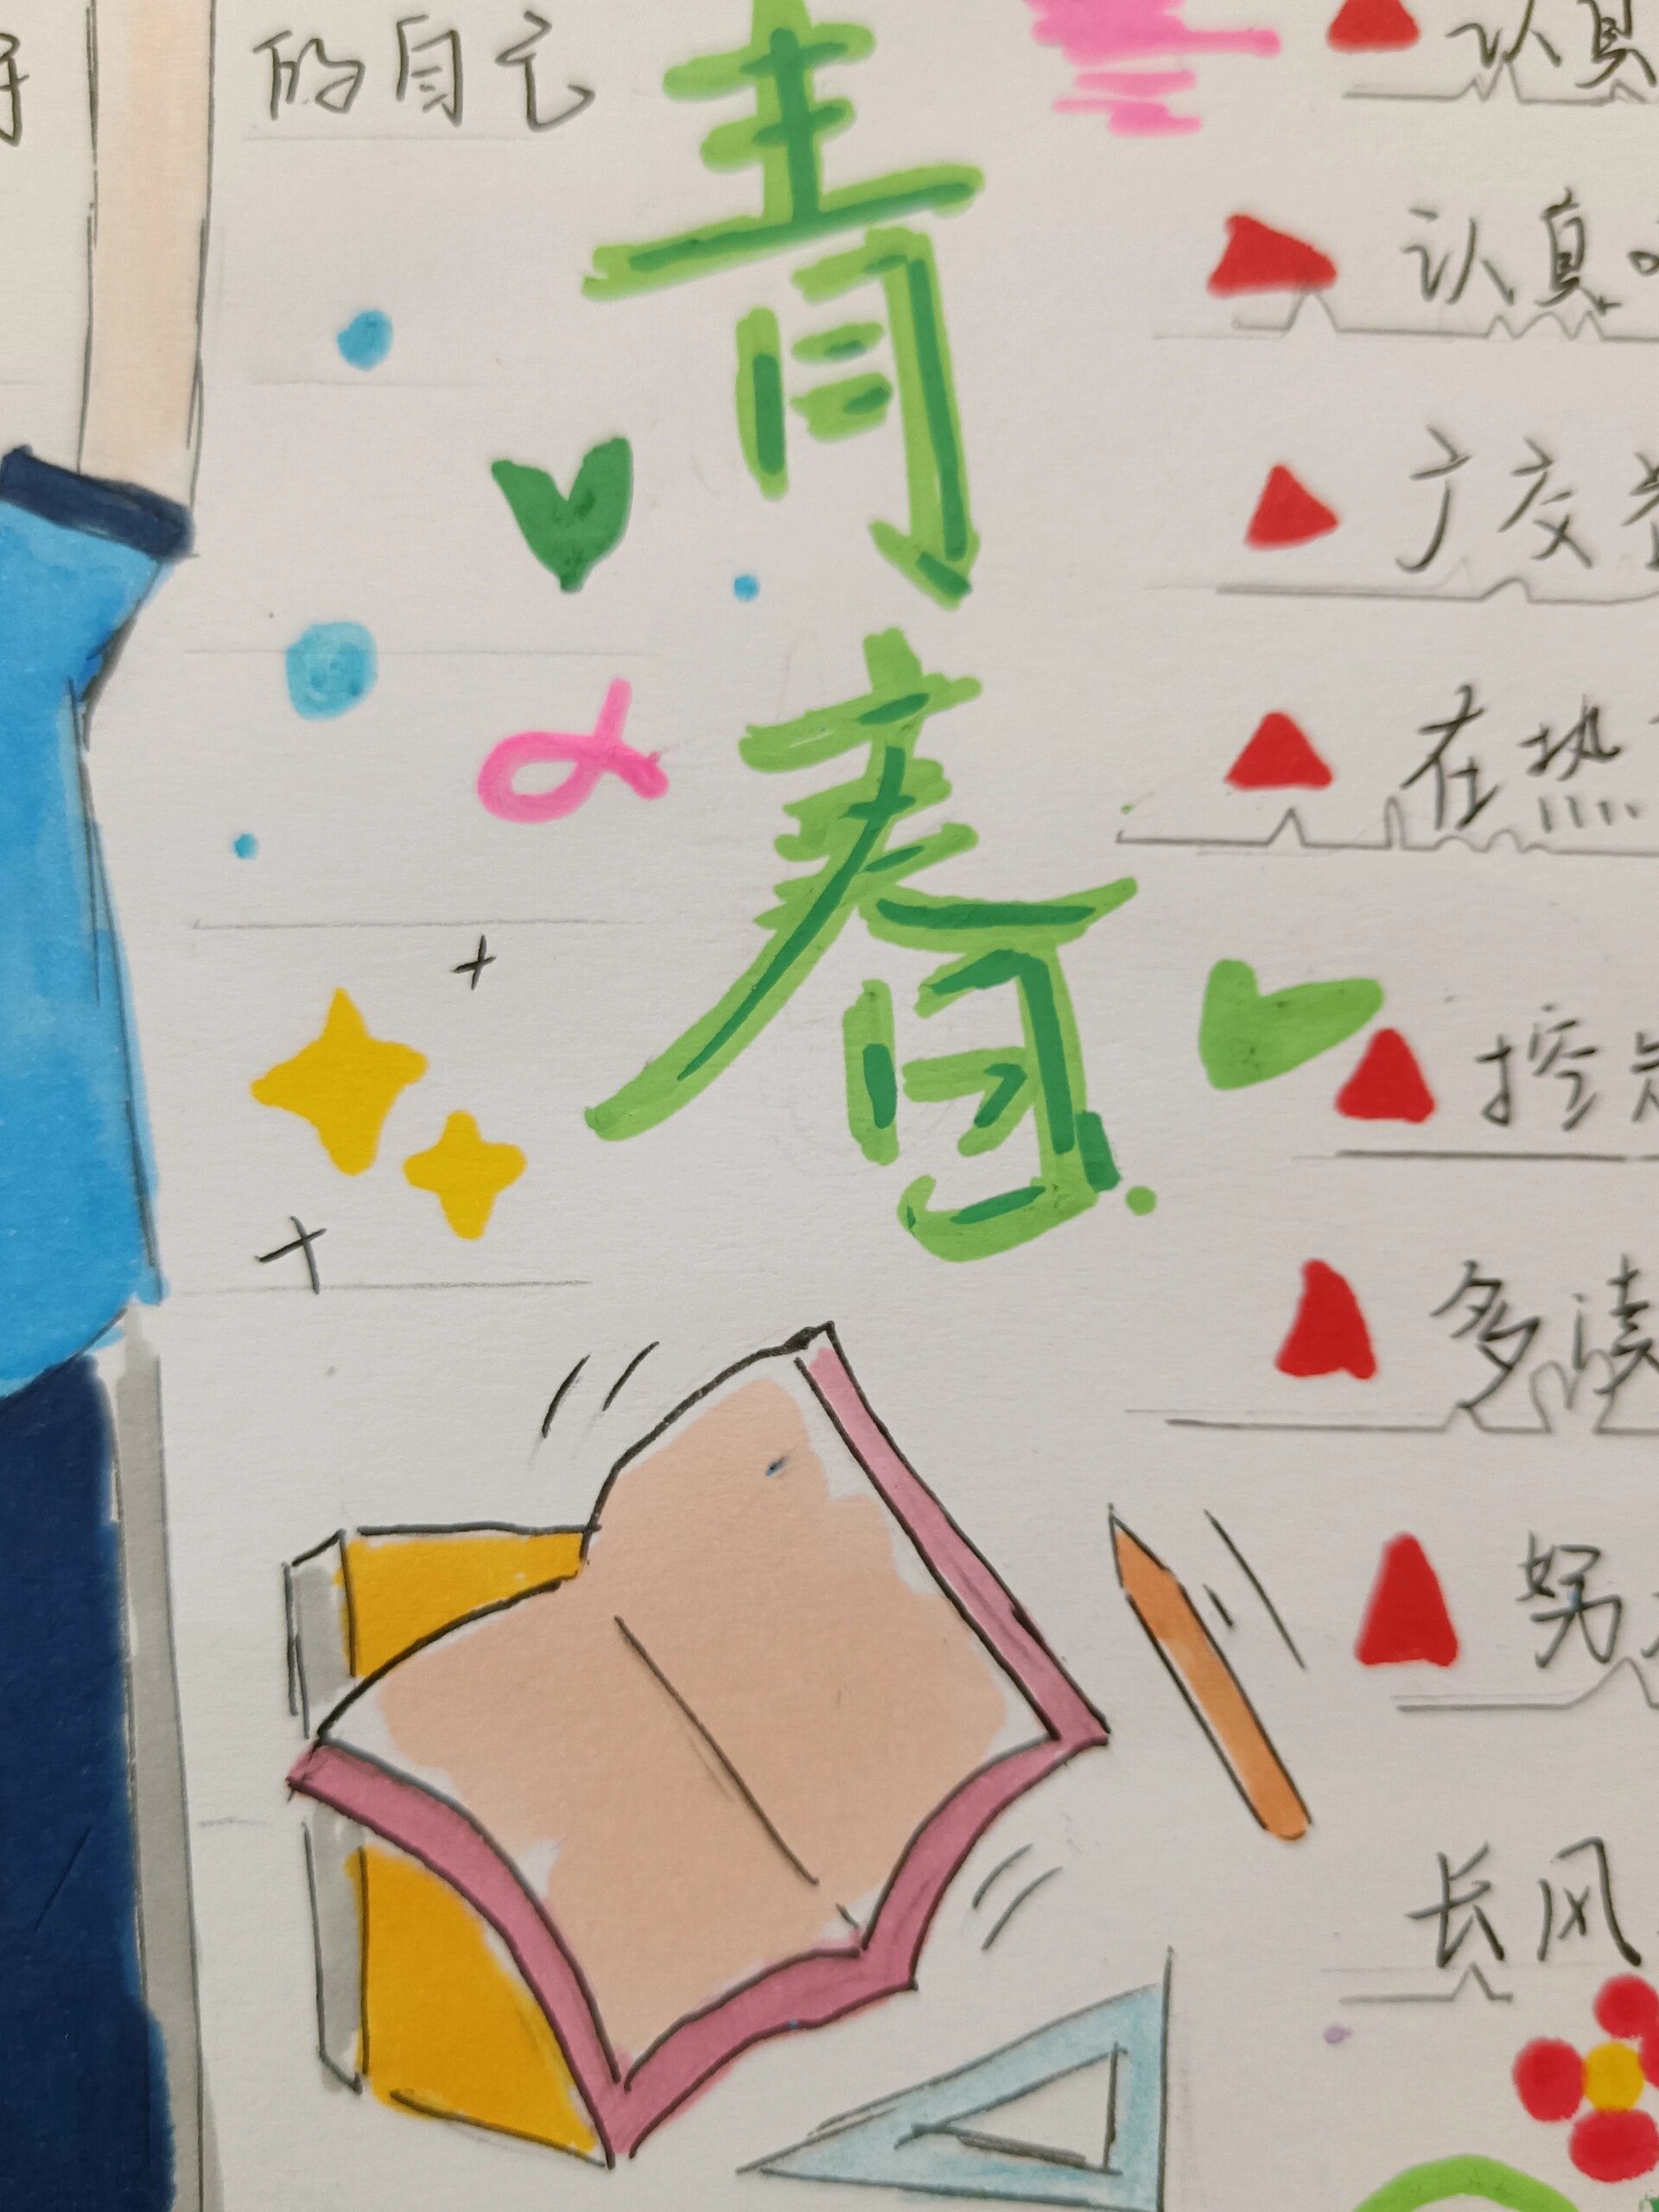 的自己
青
春
认真
认真
广交
在热
控
多读
努
长风